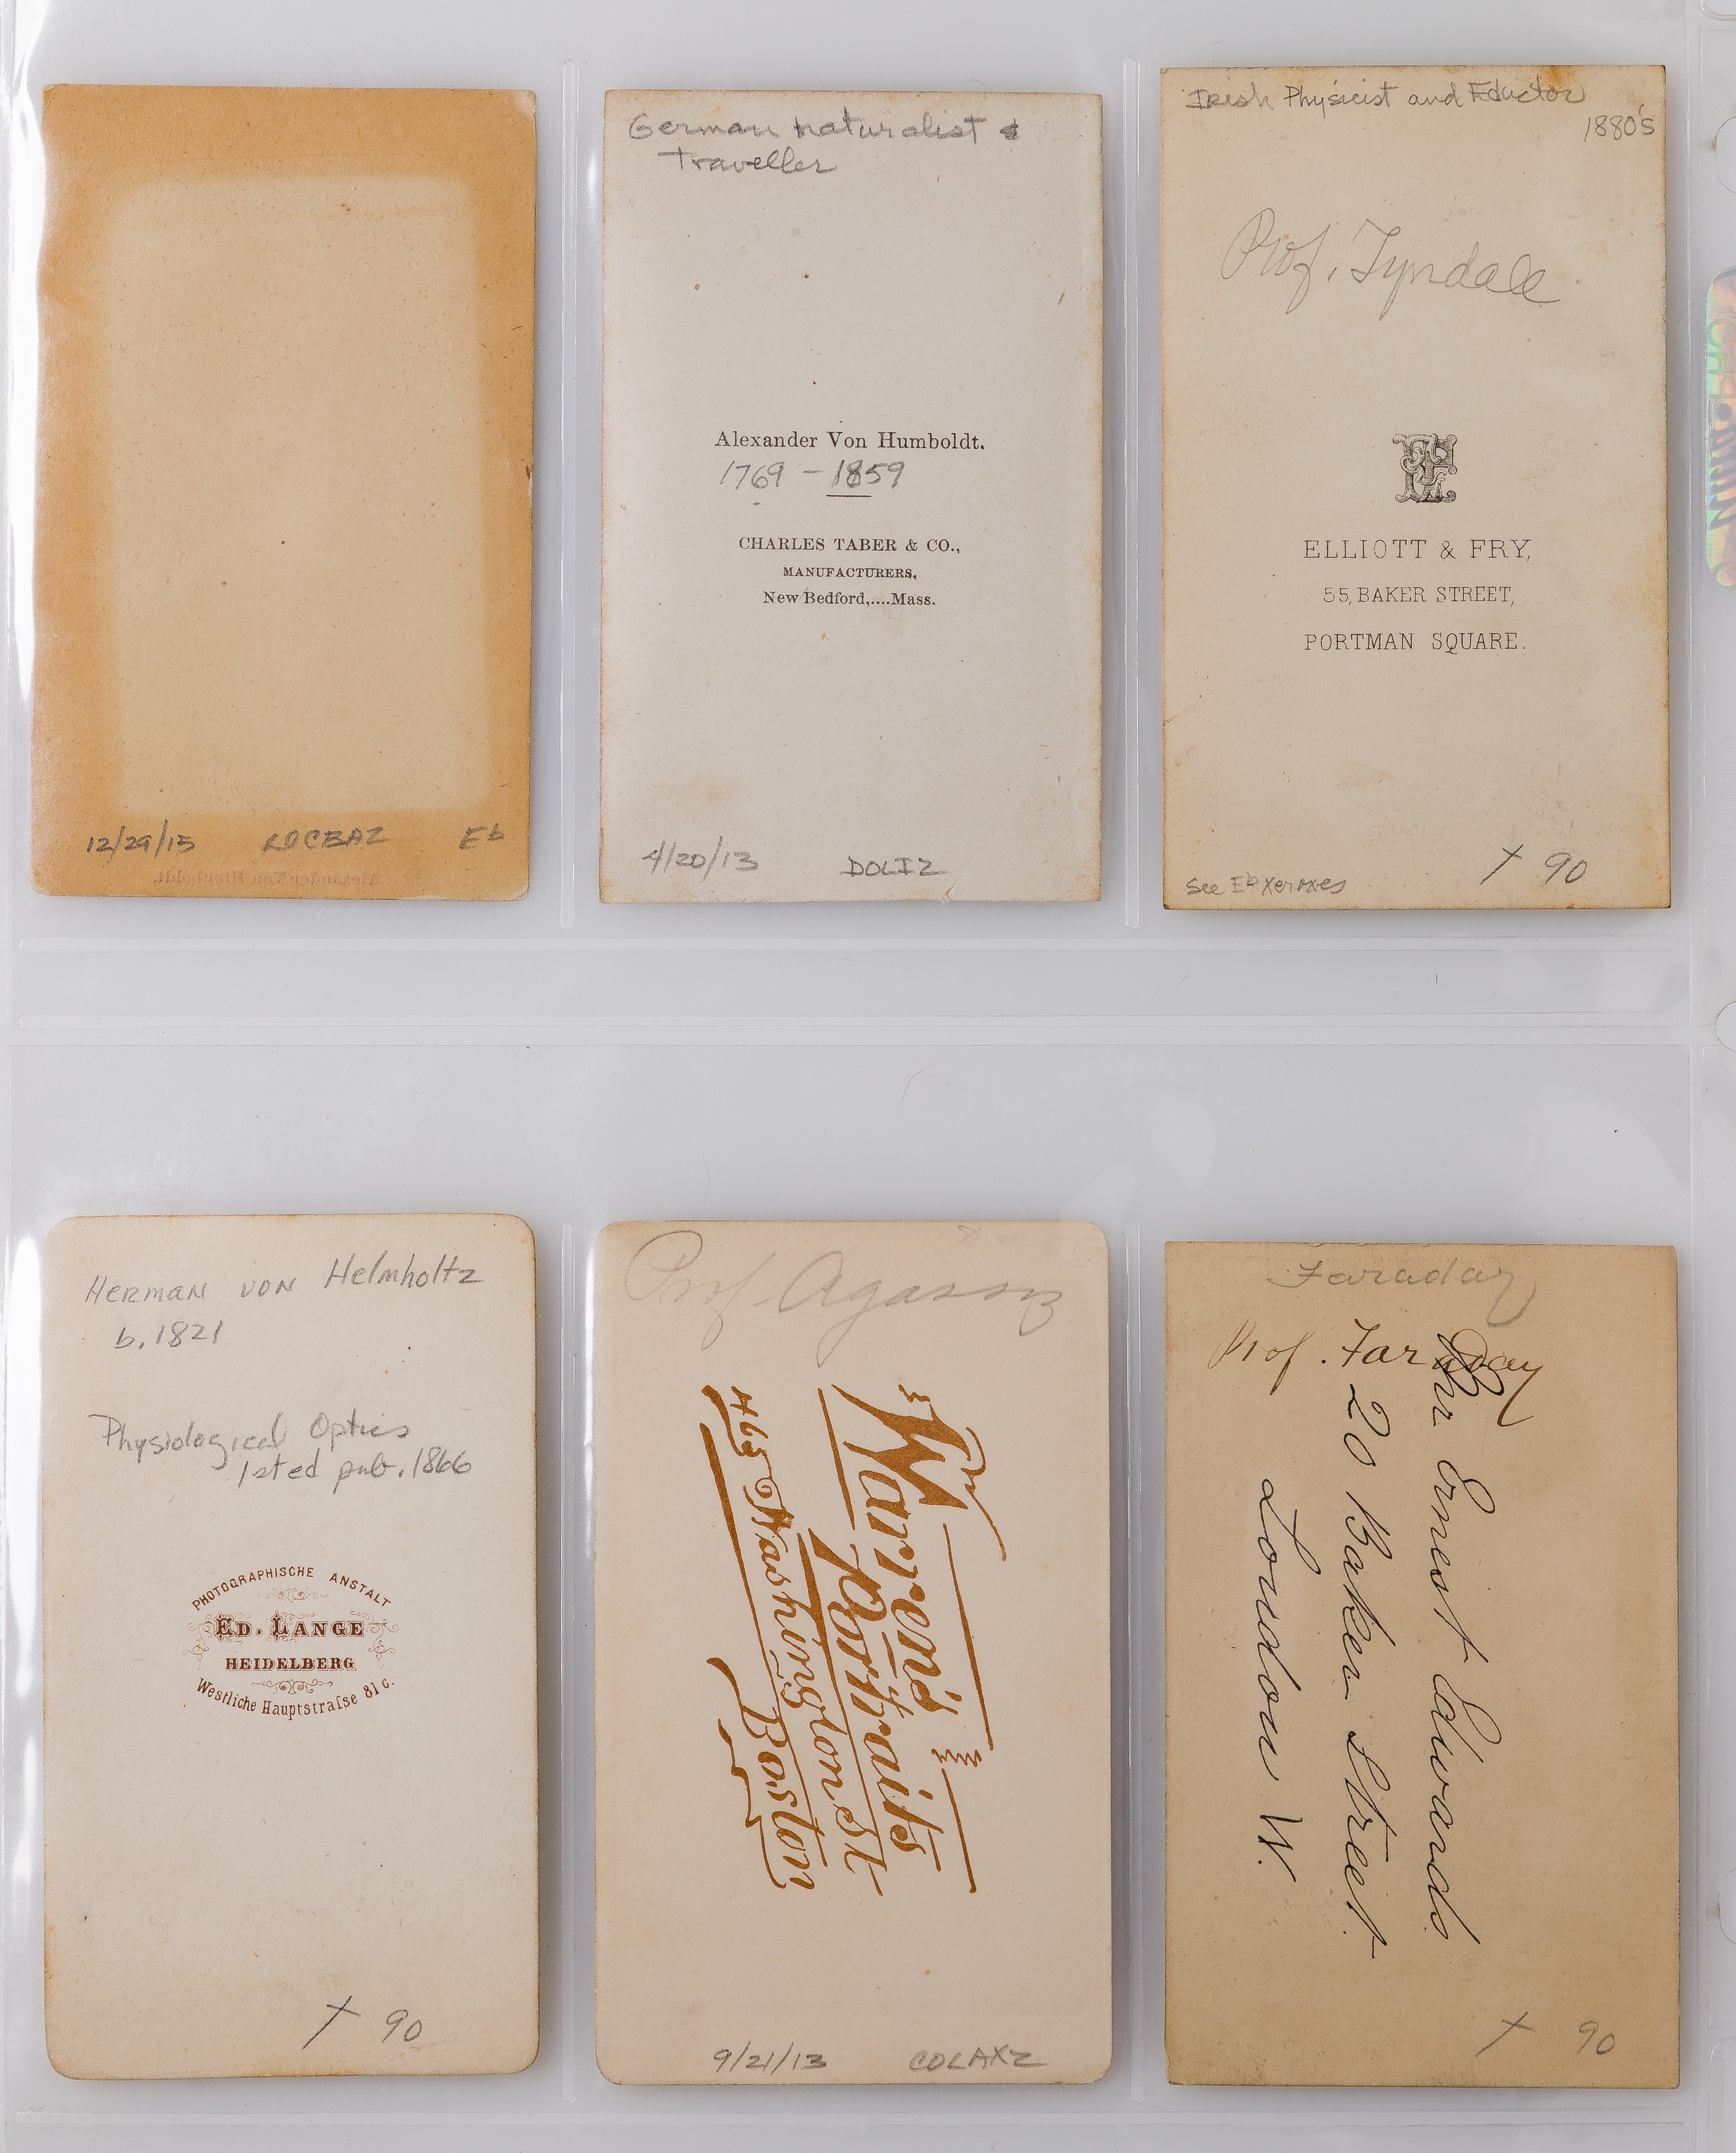 12/29/15 LOCBAZ Eb
Alexander Von Humboldt.
German naturalist &
Traveller
Alexander Von Humboldt.
1769 - 1859
CHARLES TABER & CO.,
MANUFACTURERS,
New Bedford,....Mass.
4/20/13 DOLIZ
Irish Physicist and Eductor
1880's
Prof. Tyndale
EF
ELLIOTT & FRY,
55, BAKER STREET,
PORTMAN SQUARE.
† 90
See Eb xeroxes
HERMAN VON Helmholtz
b. 1821
Physiological Optics
1st ed pub. 1866
PHOTOGRAPHISCHE ANSTALT
ED. LANGE
HEIDELBERG
Westliche Hauptstraſse 81 c.
† 90
Prof. Agassiz
Warren's
Portraits
465 Washington St
Boston
9/21/13 COLAXZ
Faraday
Prof. Faraday
Ernest Edwards
20 Baker Street
London W.
† 90